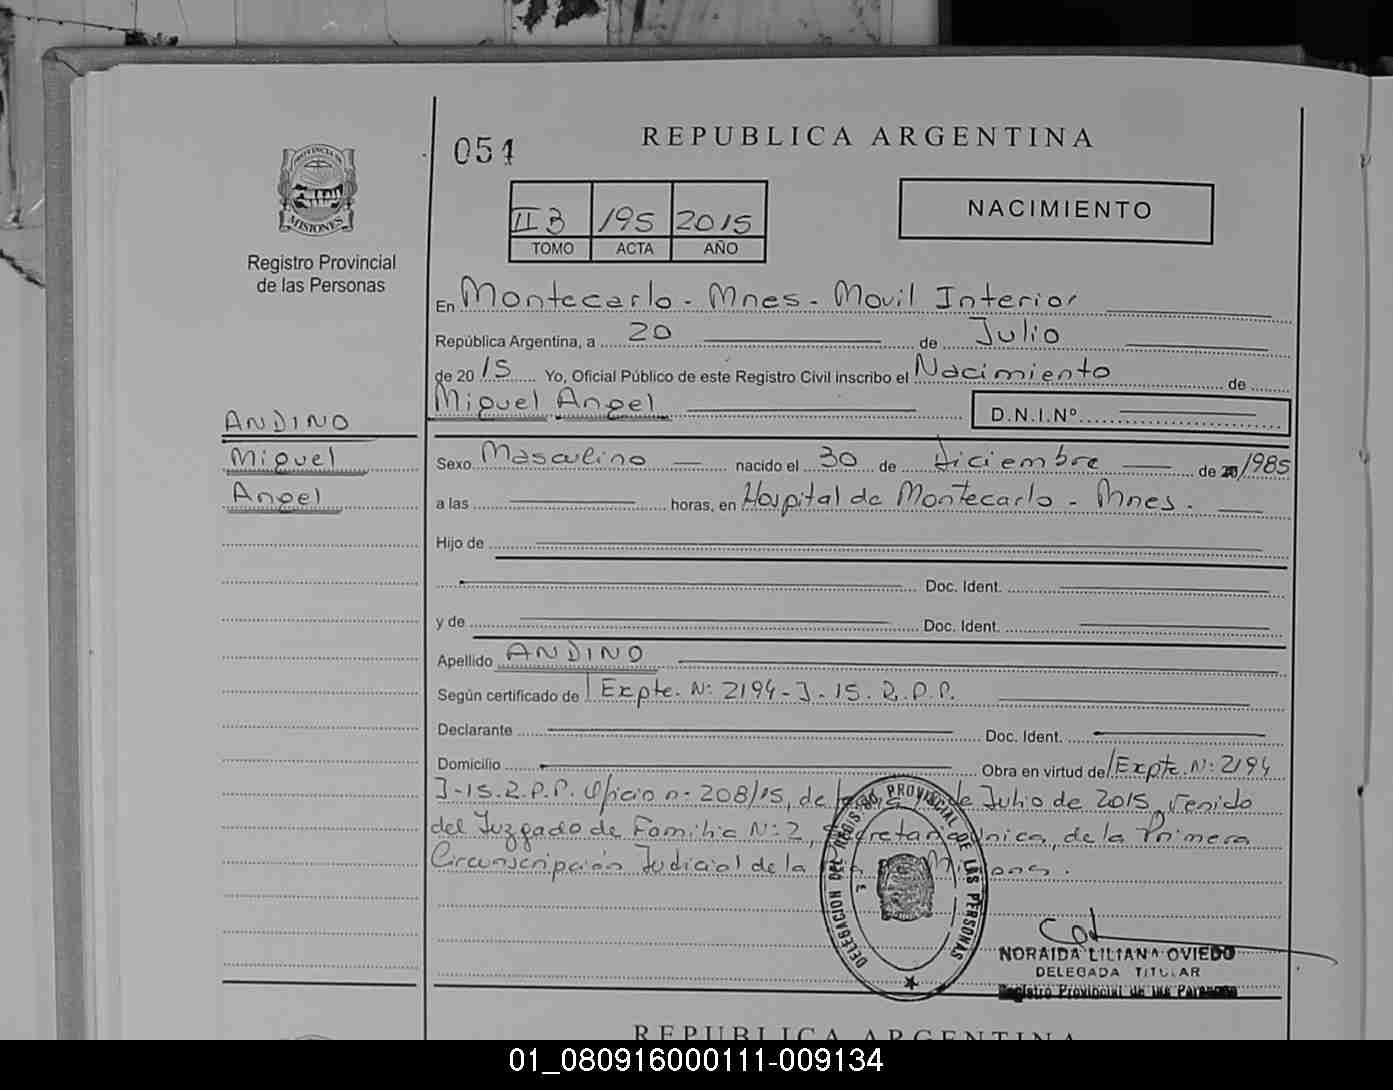 054
REPUBLICA ARGENTINA
PROVINCIA DE
MISIONES
II B 195 2015
TOMO ACTA AÑO
NACIMIENTO
Registro Provincial
de las Personas
En Montecarlo - Mnes - Movil Interior
República Argentina, a 20 de Julio
de 20 15 Yo, Oficial Público de este Registro Civil inscribo el Nacimiento de
Miguel Angel D.N.I.Nº
ANDINO
Miguel
Angel
Sexo Masculino nacido el 30 de diciembre de 1985
a las horas, en Hospital de Montecarlo - Mnes.
Hijo de
Doc. Ident.
y de Doc. Ident.
Apellido ANDINO
Según certificado de Expte. Nº 2194-J-15. R.P.P.
Declarante Doc. Ident.
Domicilio Obra en virtud de Expte. Nº 2194
J-15.R.P.P. Oficio nº 208/15, de de Julio de 2015, Venido
del Juzgado de Familia Nº 2, Secretaria Unica, de la Primera
Circunscripción Judicial de la Misiones.
DELEGACION DEL REGISTRO PROVINCIAL DE LAS PERSONAS
NORAIDA LILIANA OVIEDO
DELEGADA TITULAR
Registro Provincial de las Personas
REPUBLICA ARGENTINA
01_080916000111-009134